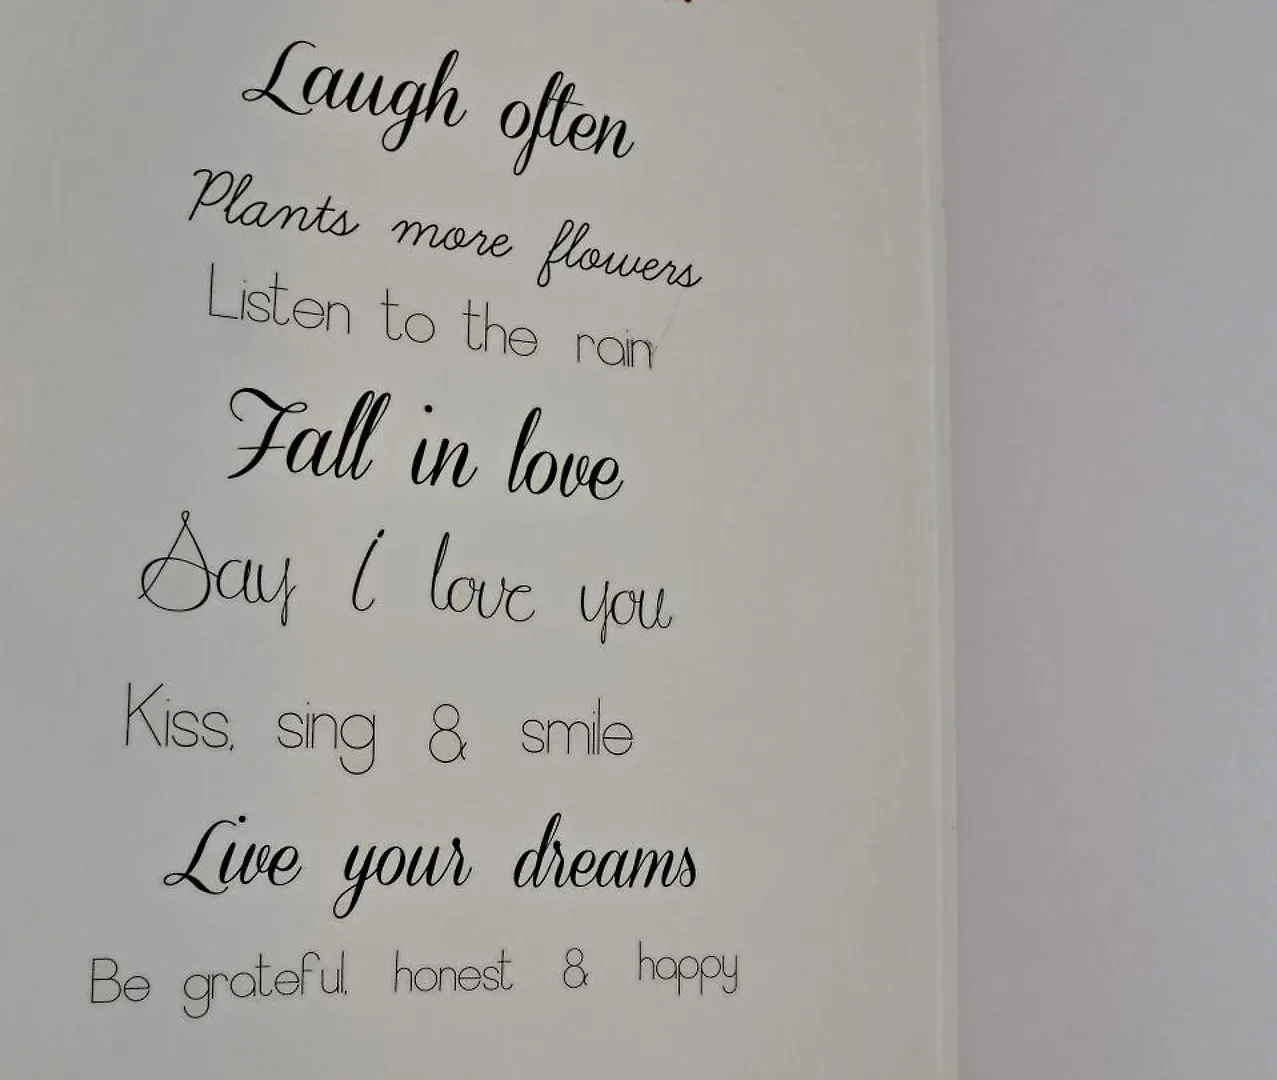 Laugh often
Plants more flowers
Listen to the rain
Fall in love
Say i love you
Kiss, sing & smile
Live your dreams
Be grateful, honest & happy